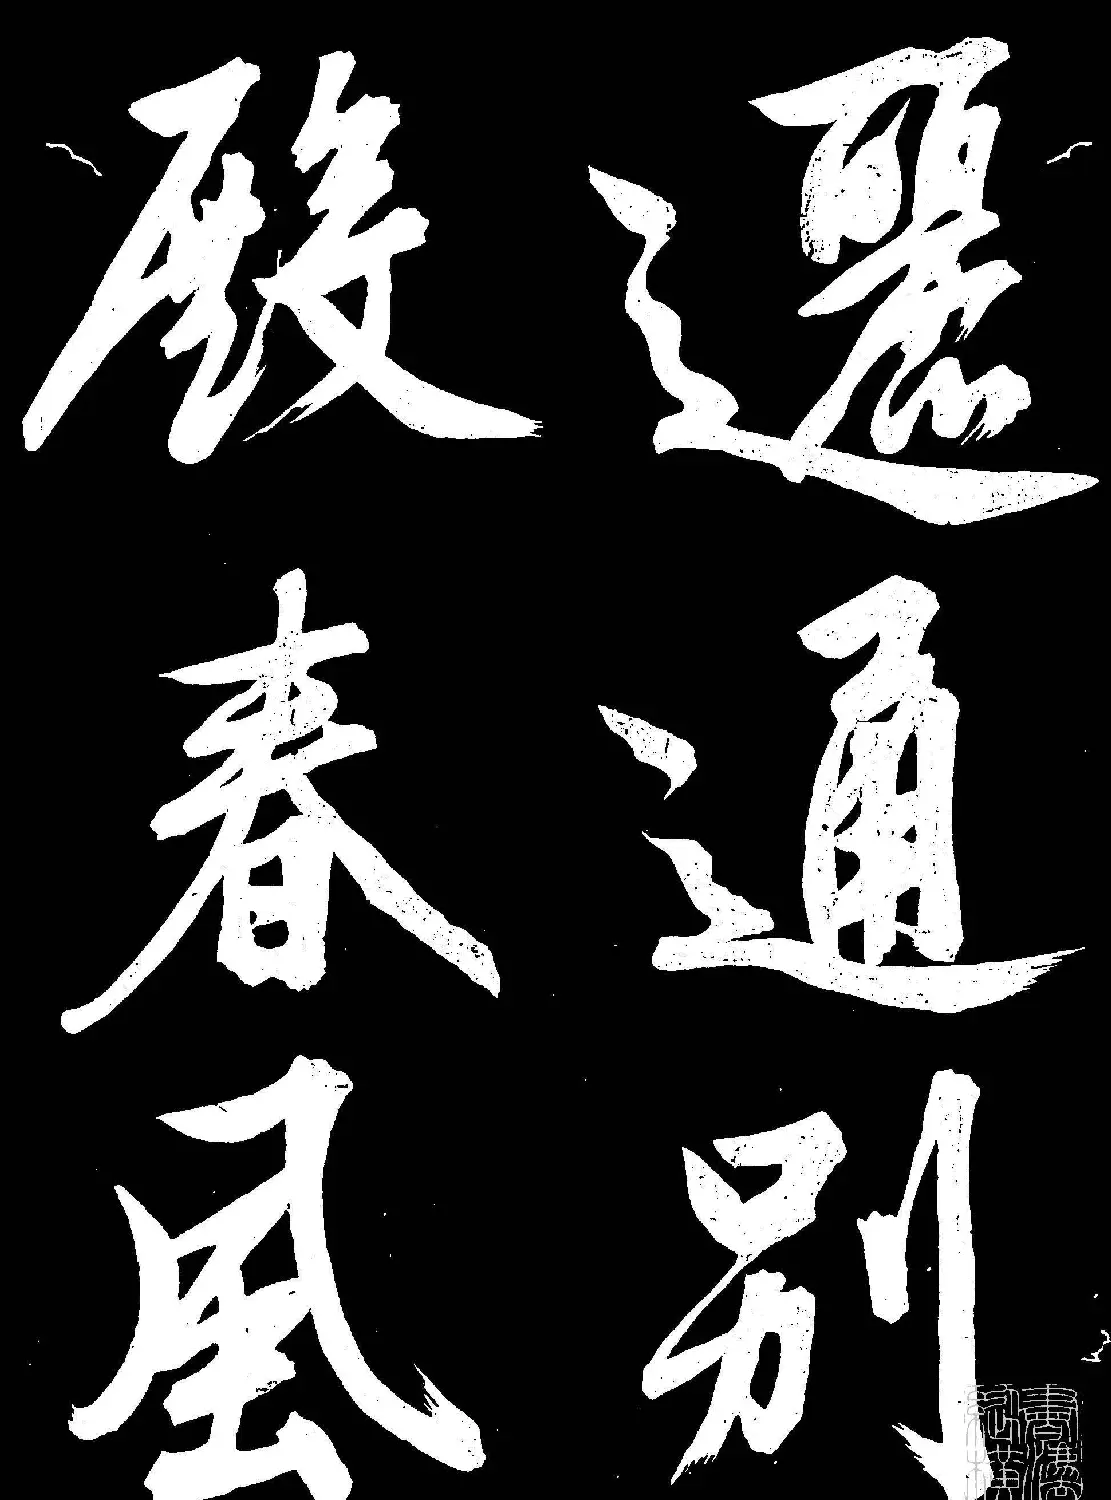 邐通別
殿春風